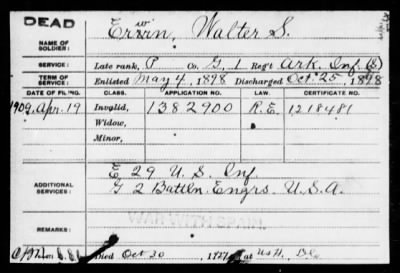 DEAD
Erwin, Walter S.
NAME OF SOLDIER:
SERVICE: Late rank, P Co. G, 1 Reg't Ark. Inf
TERM OF SERVICE: Enlisted May 4, 1898 Discharged Oct. 25, 1898
DATE OF FILING. CLASS. APPLICATION NO. LAW. CERTIFICATE NO.
1909, Apr. 19 Invalid, 1382900 R.E. 1218481
Widow,
Minor,
ADDITIONAL SERVICES: E 29 U.S. Inf.
G 2 Battln. Engrs. U.S.A.
WAR WITH SPAIN
REMARKS:
Died Oct 20 1927, at